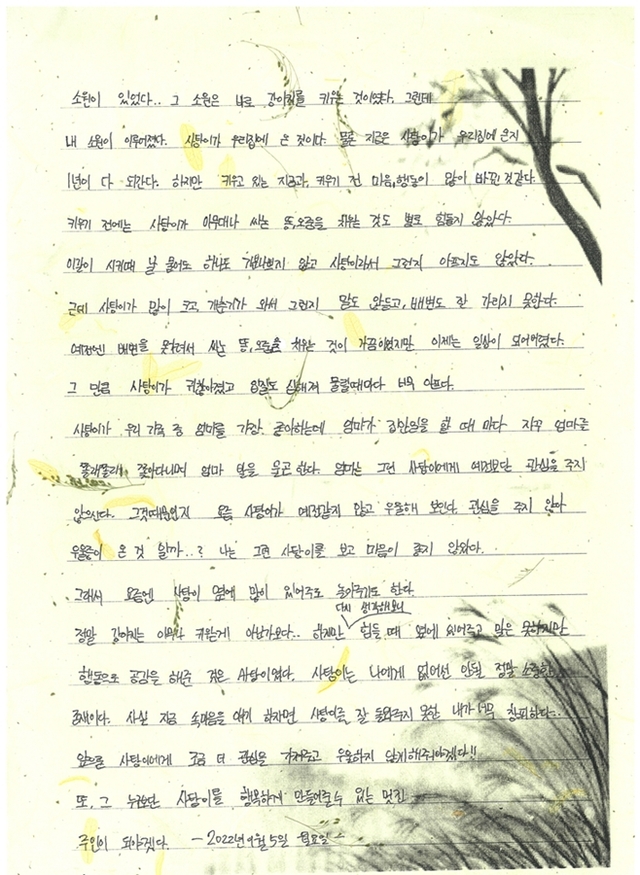 소원이 있었다.. 그 소원은 바로 강아지를 키우는 것이였다. 그런데
내 소원이 이루어졌다. 사탕이가 우리집에 온 것이다. 물론 지금은 사탕이가 우리집에 온지
1년이 다 되간다. 하지만 키우고 있는 지금과, 키우기 전 마음,행동이 많이 바뀐 것같다.
키우기 전에는 사탕이가 아무대나 싸는 똥,오줌을 치우는 것도 별로 힘들지 않았다.
이갈이 시기때 날 물어도 하나도 기분나쁘지 않고 사탕이라서 그런지 아프지도 않았다.
근데 사탕이가 많이 크고, 개춘기가 와서 그런지 말도 안듣고, 배변도 잘 가리지 못한다.
예전엔 배변을 못가려서 싸는 똥,오줌을 치우는 것이 가끔이였지만 이제는 일상이 되어버렸다.
그 만큼 사탕이가 귀찮아졌고 입질도 심해져 물릴때마다 너무 아프다.
사탕이가 우리 가족 중 엄마를 가장 좋아하는데 엄마가 집안일을 할 때 마다 자꾸 엄마를
쫄래쫄래 쫓아다니며 엄마 발을 물고 한다. 엄마는 그런 사탕이에게 예전보단 관심을 주지
않으신다. 그것때문인지 요즘 사탕이가 예전같지 않고 우울해 보인다. 관심을 주지 않아
우울증이 온 것 일까..? 나는 그런 사탕이를 보고 마음이 좋지 않았다.
그래서 요즘엔 사탕이 옆에 많이 있어주고 놀아주기도 한다.
정말 강아지는 아무나 키우는게 아닌가보다.. 하지만 다시 생각해보니 힘들 때 옆에 있어주고 말은 못하지만
행동으로 공감을 해준 것은 사탕이였다. 사탕이는 나에게 없어선 안될 정말 소중한
존재이다. 사실 지금 속마음을 얘기 하자면 사탕이를 잘 돌봐주지 못한 내가 너무 창피하다..
앞으로 사탕이에게 조금 더 관심을 가져주고 우울하지 않게 해주어야겠다!!
또, 그 누구보단 사탕이를 행복하게 만들어줄수 있는 멋진
주인이 되야겠다. -2022년 9월 5일 월요일-